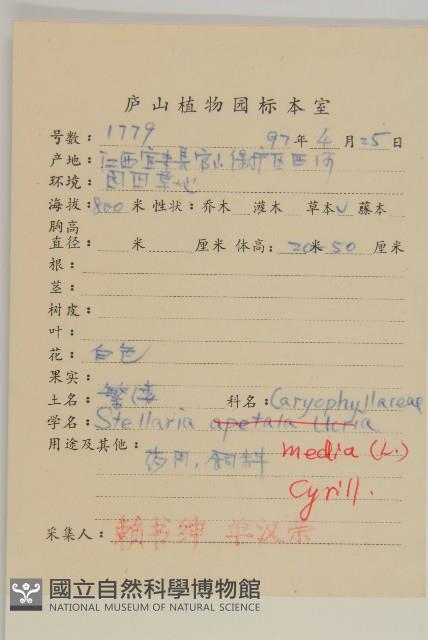 庐山植物园标本室
号数：1779 97年4月25日
产地：江西宜丰县官山保护区西河
环境：田草地
海拔：800米 性状：乔木 灌木 草本√ 藤本
胸高
直径： 米 厘米 体高：20米50 厘米
根：
茎：
树皮：
叶：
花：白色
果实：
土名：繁缕 科名：Caryophyllaceae
学名：Stellaria apetala Ucria
用途及其他： media (L.)
药用，饲料
Cyrill.
采集人：赖书绅 单汉荣
國立自然科學博物館
NATIONAL MUSEUM OF NATURAL SCIENCE